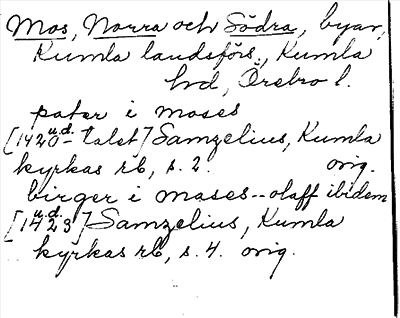 Mos, Norra och Södra, byar,
Kumla landsförs., Kumla
hd, Örebro l.
pater i moses
[1420 u.d. - talet] Samzelius, Kumla
kyrkas rb, s. 2. orig.
birger i mases -- olaff ibidem
[1423 u.d.] Samzelius, Kumla
kyrkas rb, s. 4. orig.